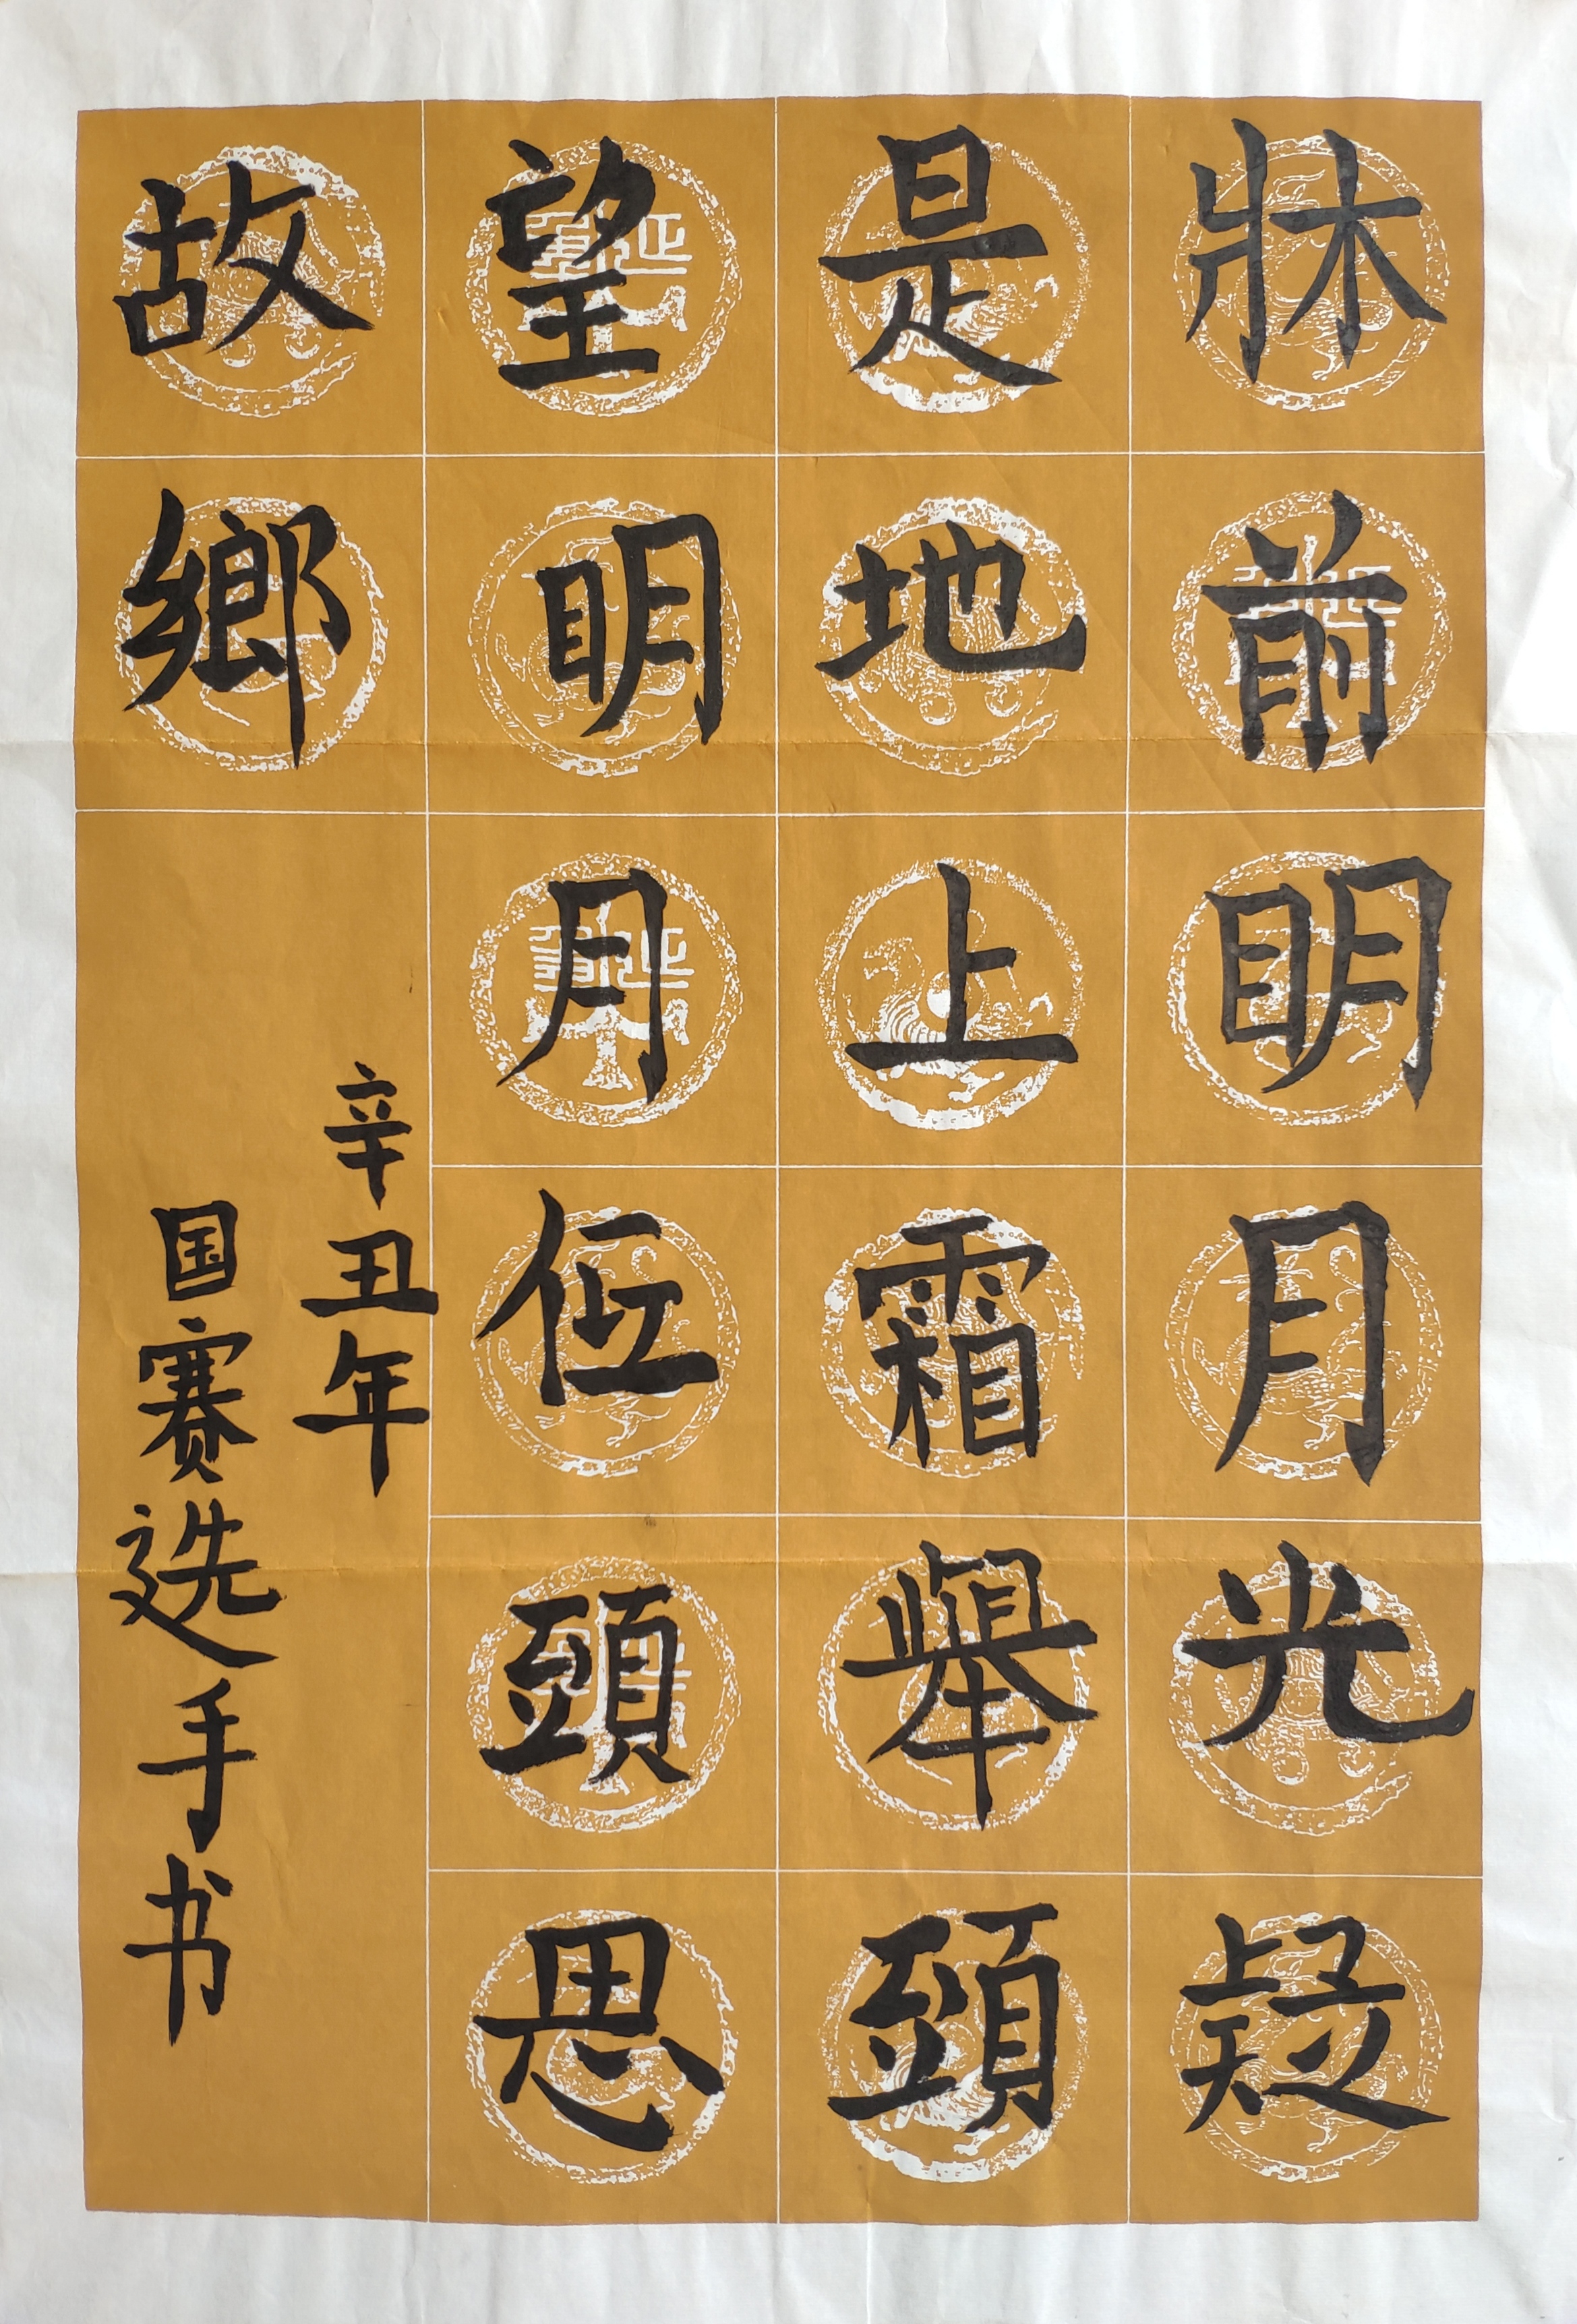 牀前明月光疑
是地上霜舉頭
望明月低頭思
故鄉
辛丑年
国赛选手书